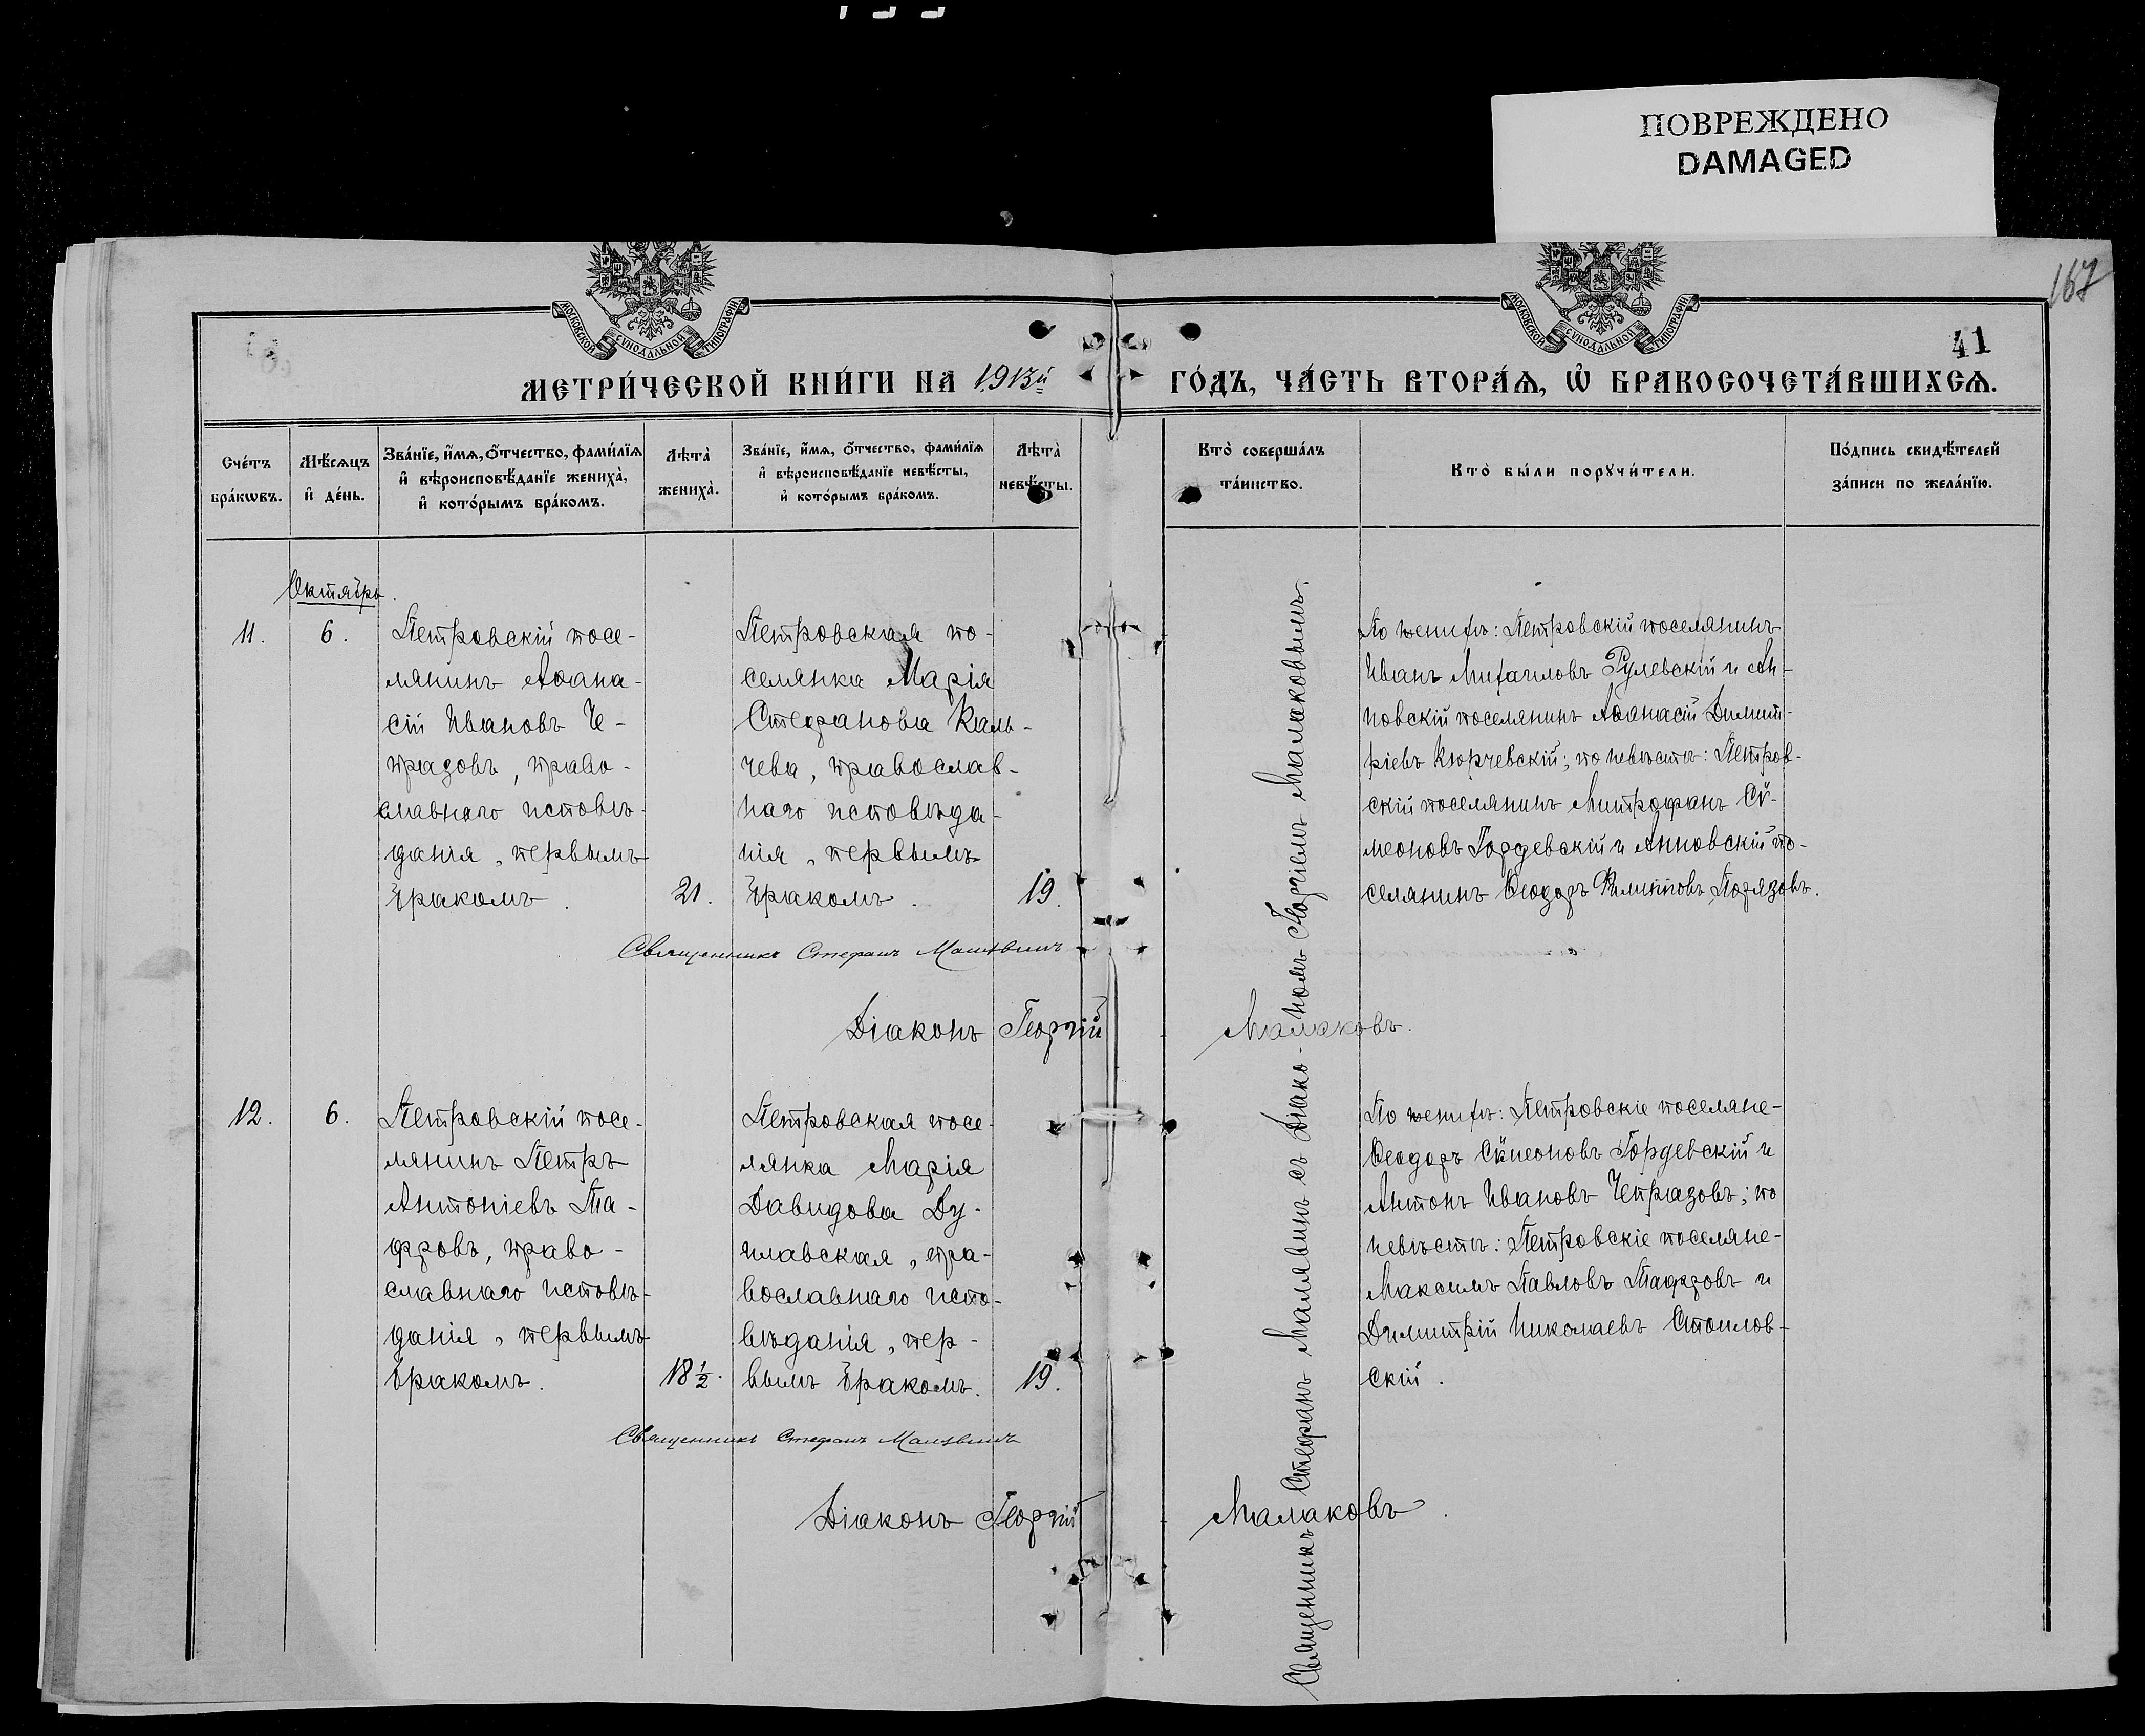 ПОВРЕЖДЕНО
DAMAGED
167
41
МОСКОВСКОЙ СУНОДАЛЬНОЙ ТИПОГРАФІИ
МОСКОВСКОЙ СУНОДАЛЬНОЙ ТИПОГРАФІИ
МЕТРИ́ЧЕСКОЙ КНИ́ГИ НА 1913й ГО́ДЪ, ЧА́СТЬ ВТОРА́Ѧ, Ѡ҆ БРАКОСОЧЕТА́ВШИХСѦ.
Сче́тъ
бра́кѡвъ.
Мѣ́сѧцъ
и҆ де́нь.
Зва́нїе, и҆́мѧ, ѻ҆́тчество, фами́лїѧ
и҆ вѣроисповѣ́данїе жениха̀,
и҆ кото́рымъ бра́комъ.
Лѣта̀
жениха̀.
Зва́нїе, и҆́мѧ, ѻ҆́тчество, фами́лїѧ
и҆ вѣроисповѣ́данїе невѣ́сты,
и҆ кото́рымъ бра́комъ.
Лѣта̀
невѣ́сты.
Кто̀ соверша́лъ
та́инство.
Кто̀ бы́ли порꙋчи́тели.
По́дпись свидѣ́телей
за́писи по жела́нїю.
Октябрь.
11.
6.
Петровскій посе-
лянинъ Аѳана-
сій Ивановъ Че-
празовъ, право-
славнаго исповѣ-
данія, первымъ
бракомъ.
21.
Петровская по-
селянка Марія
Стефанова Каль-
чева, православ-
наго исповѣда-
нія, первымъ
бракомъ.
19.
Священникъ Стефанъ Малявинъ съ Діако-номъ Георгіемъ Малаковымъ.
По женихѣ: Петровскій поселянинъ
Иванъ Михаиловъ Гулевскій и Ан-
новскій поселянинъ Аѳанасій Димит-
ріевъ Кюрчевскій; по невѣстѣ: Петров-
скій поселянинъ Митрофанъ Сѵ-
меоновъ Гордевскій и Анновскій по-
селянинъ Ѳеодоръ Филипповъ Порязовъ.
Священникъ Стефанъ Малявинъ
Діаконъ Георгій Малаковъ.
12.
6.
Петровскій посе-
лянинъ Петръ
Антоніевъ Та-
фровъ, право-
славнаго исповѣ-
данія, первымъ
бракомъ.
18 1/2.
Петровская посе-
лянка Марія
Давидова Ду-
лавская, пра-
вославнаго испо-
вѣданія, пер-
вымъ бракомъ.
19.
По женихѣ: Петровскіе поселяне-
Ѳеодоръ Сѵмеоновъ Гордевскій и
Антонъ Ивановъ Чепразовъ; по
невѣстѣ: Петровскіе поселяне-
Максимъ Павловъ Тафровъ и
Димитрій Николаевъ Стоилов-
скій.
Священникъ Стефанъ Малявинъ
Діаконъ Георгій Малаковъ.